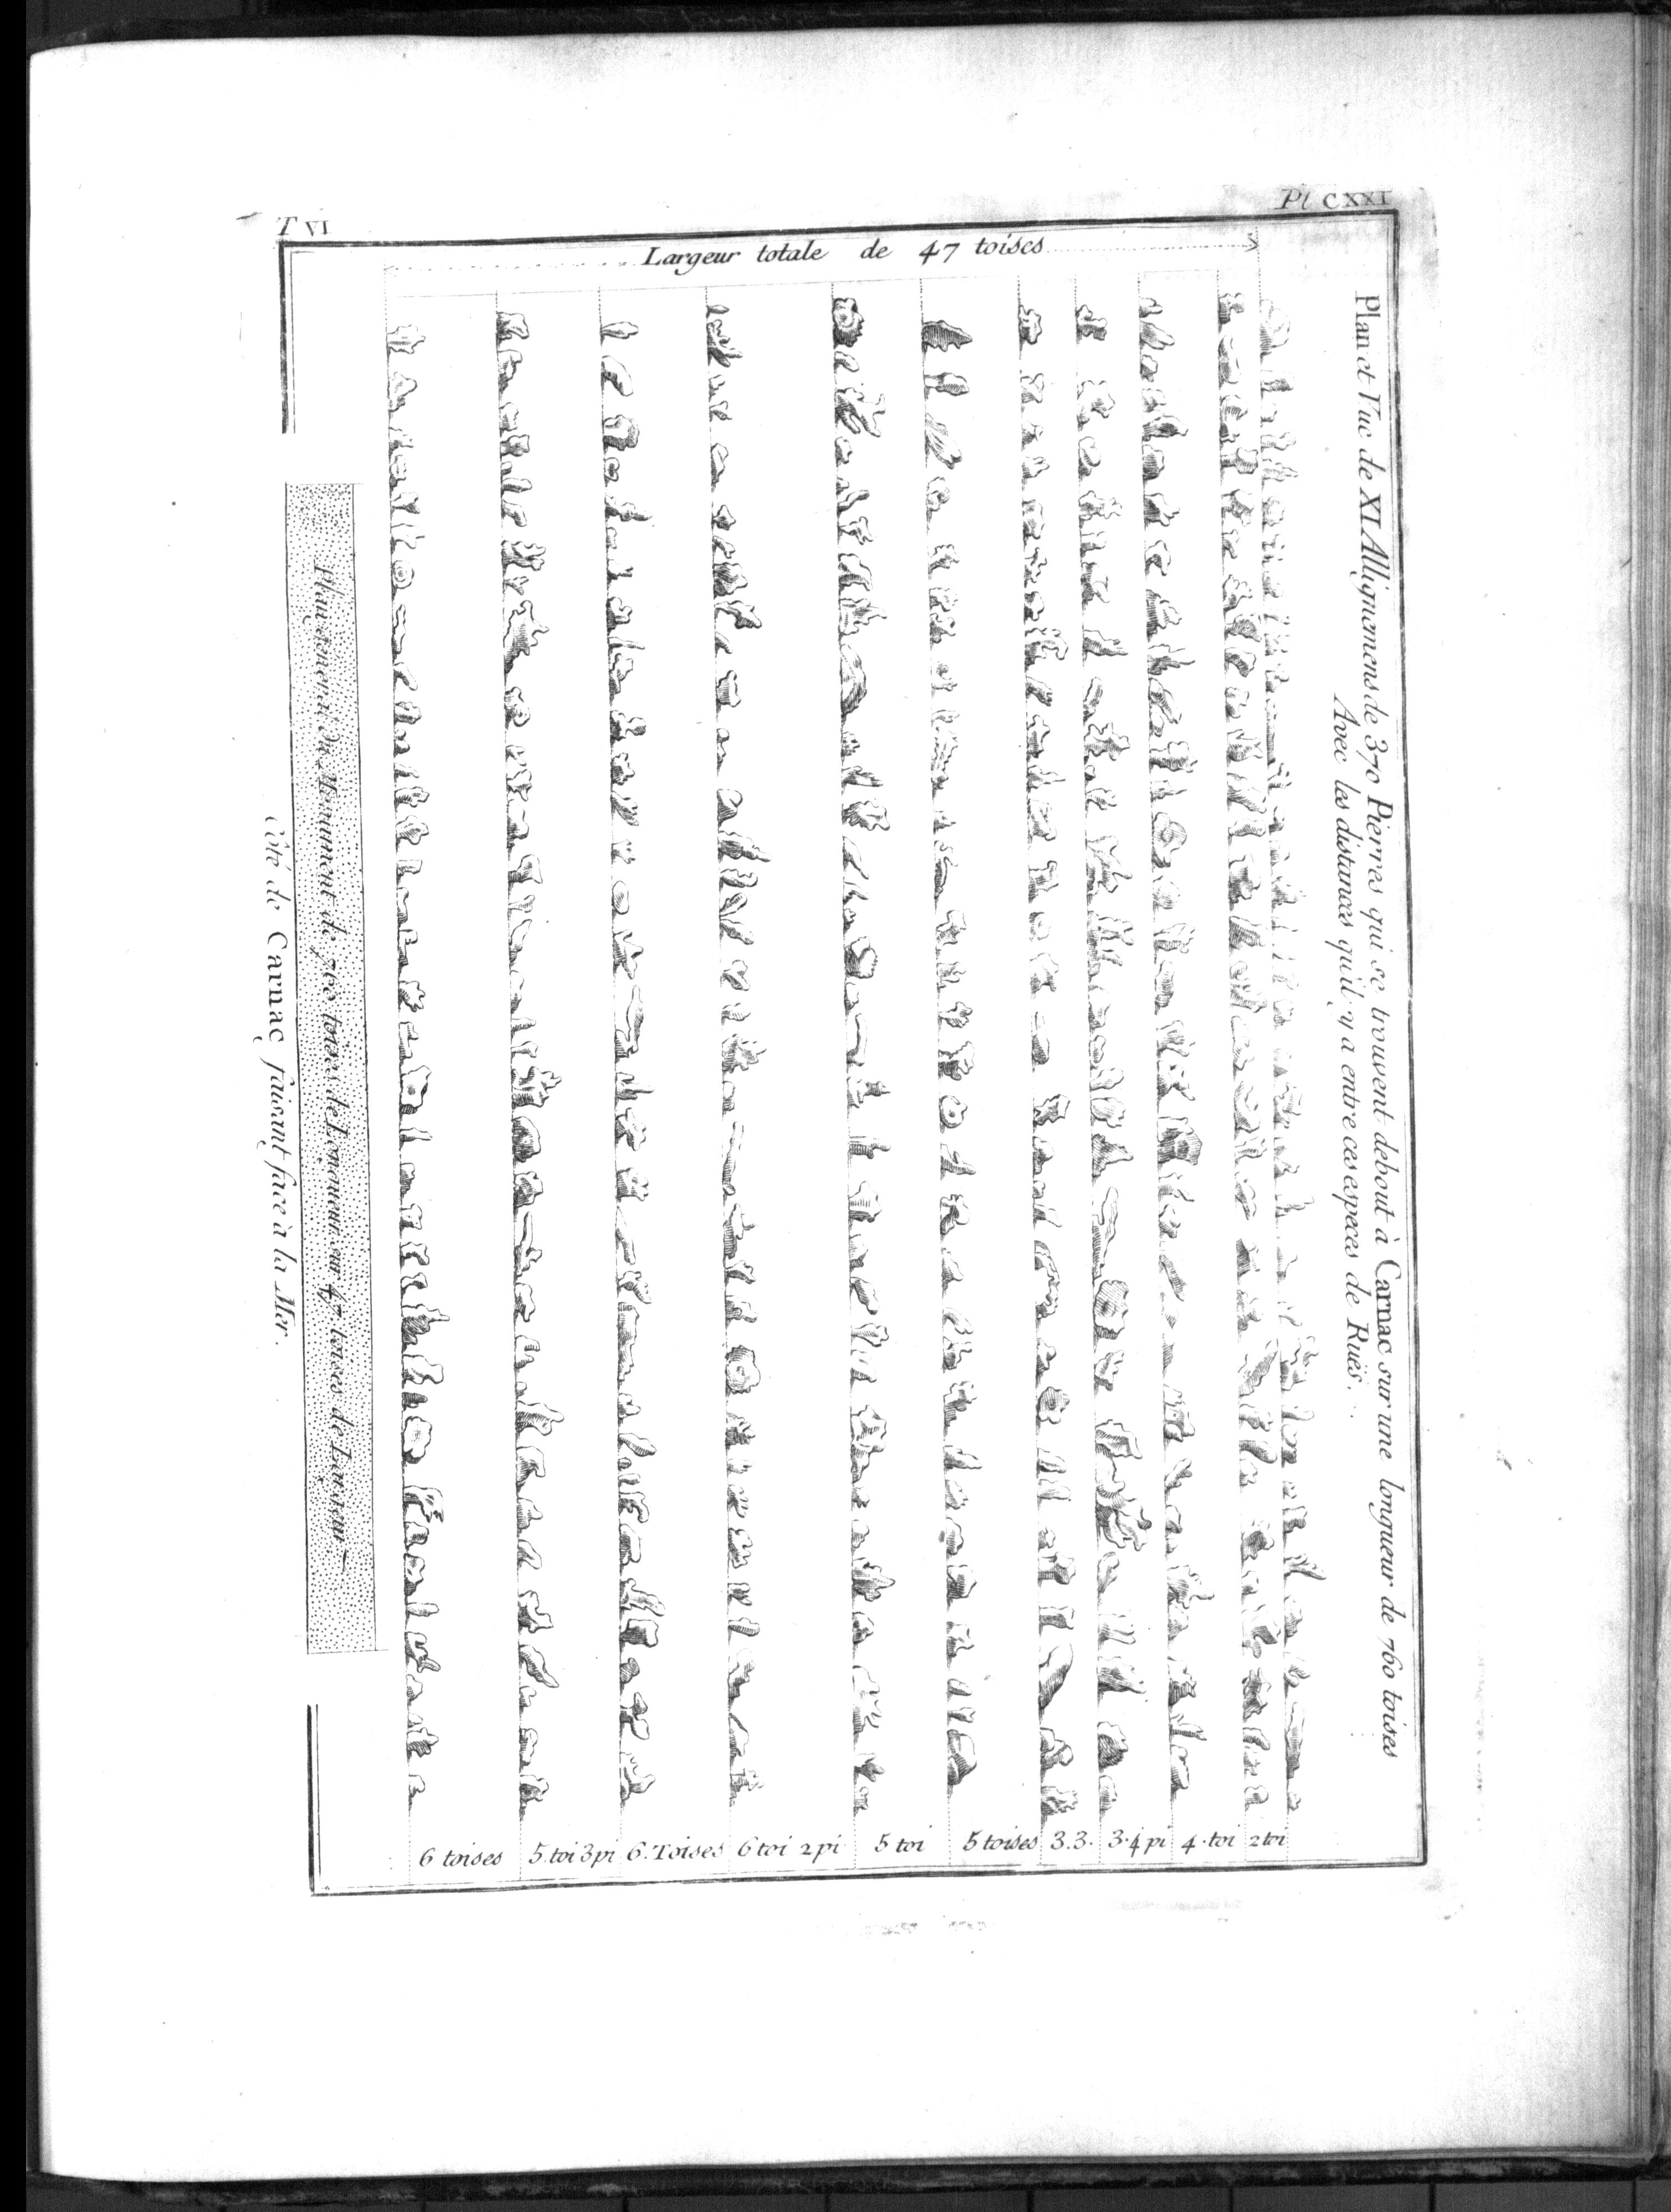 T VI
Pl CXXI
Plan et Vue de XI Allignemens de 370 Pierres qui se trouvent debout à Carnac sur une longueur de 760 toises
Avec les distances qu'il y a entre ces especes de Rues.
Largeur totale de 47 toises
6 toises 5 toi 3 pi 6. Toises 6 toi 2 pi 5 toi 5 toises 3.3. 3.4 pi 4. toi 2 toi
Plan general du Monument de 760 toises de Longueur sur 47 toises de Largeur
Côté de Carnac faisant face à la Mer.